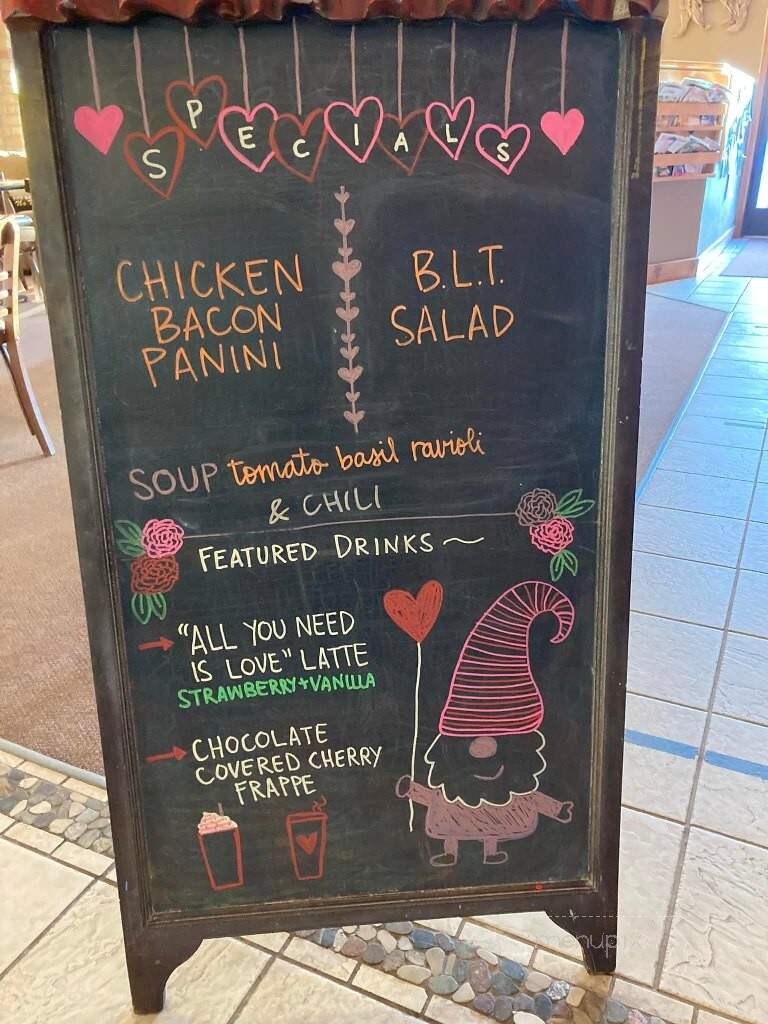 SPECIALS
CHICKEN
BACON
PANINI
B.L.T.
SALAD
SOUP tomato basil ravioli
& CHILI
FEATURED DRINKS ~
→ "ALL YOU NEED
IS LOVE" LATTE
STRAWBERRY+VANILLA
→ CHOCOLATE
COVERED CHERRY
FRAPPE